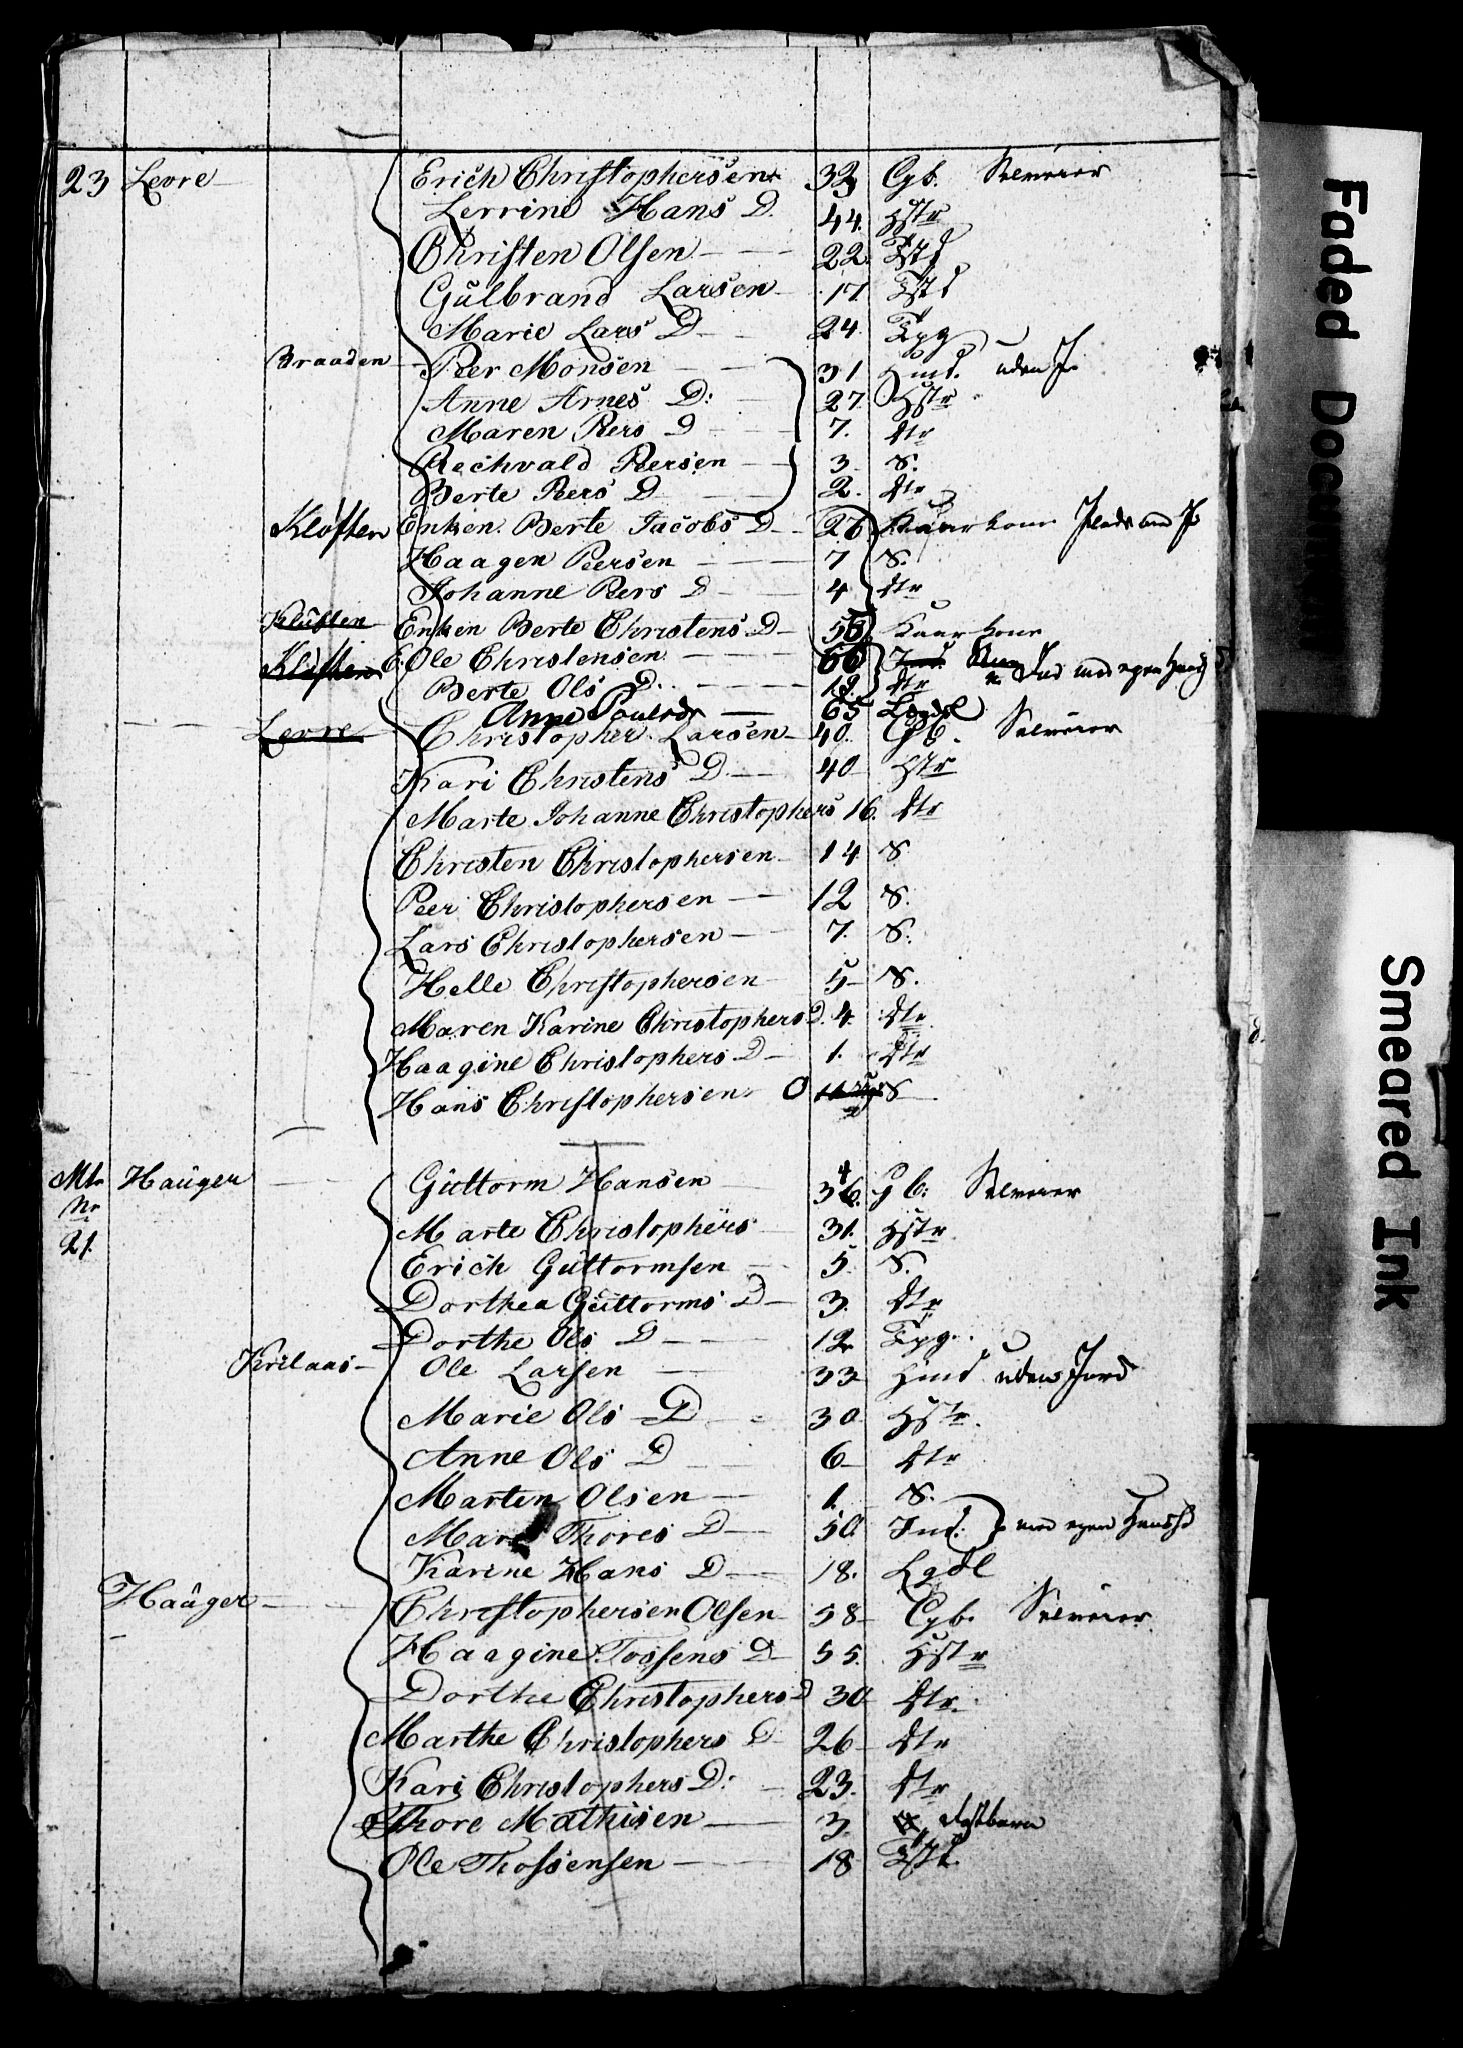 23 Levre Erich Christophersen 33 Gb. Selveier
Lerrine Hans D. 44. Hstr
Christen Olsen 22. Tst
Gülbrand Larsen 17 Tst
Marie Lars D 24. Tpg
Braaden Peer Monsen 31 Hmd. uden J.
Anne Arnes D: 27. Hstr
Maren Peers D 7. dtr
Rechvald Peersen 3 S.
Berte Peers D 2. dtr
Kløften Enken Berte Jacobs D 26 Kaarkone
Haagen Peersen 7 S.
Johanne Peers D 4 dtr
Kløften Enken Berte Christens D 55 Kaarkone
Kløften E. Ole Christensen 66 Ind med egen Huush
Berte Ols D. 19. dtr
Anne Poulsdr 65 Legdl
Levre Christopher Larsen 40. Gb. Selveier
Kari Christens D. 40 Hstr
Marte Johanne Christophers 16. dtr
Christen Christophersen 14 S
Peer Christophersen 12 S.
Lars Christophersen 7. S.
Helle Christophersen 5 S.
Maren Karine Christophers D. 4. dtr
Haagine Christophers D 1. dtr
Hans Christophersen 0 S
Mtr Haüger Güttorm Hansen 36. Gb: Selveier
Nr Marte Christophers 31. Hstr
21. Erich Güttormsen 5. S.
Dorthea Güttorms D 3. dtr
Dorthe Ols D 12 Tpg.
Ole Larsen 33 Hmd uden Jord
Marie Ols D 30 Hstr.
Anne Ols D 6 dtr
Marten Olsen 1. S.
Mare Thores D 50. Ind: med egen Huush
Karine Hans D 18. Lgdl
Haüger Christophersen Olsen 58 Gb. Selveier
Haagine Tossens D 55. Hstr
Dorthe Christophers D 30 dtr.
Marthe Christophers D 26 dtr
Kari Christophers D: 23. dtr
Thore Mathisen 3. Fostbarn
Ole Thossensen 18 Tst.
Faded Document
Smeared Ink